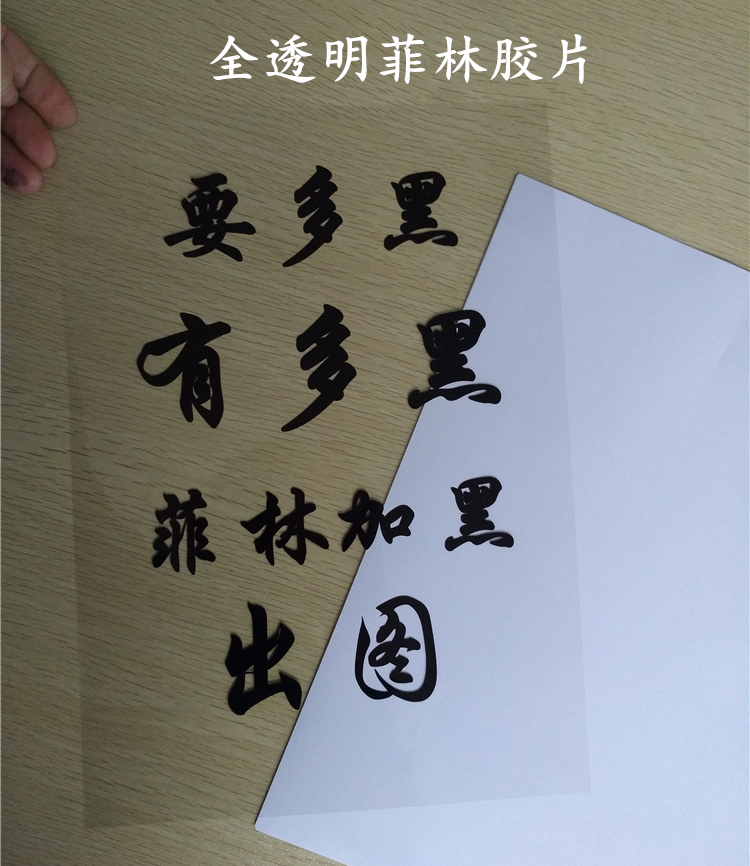 全透明菲林胶片
要多黑
有多黑
菲林加黑
出图